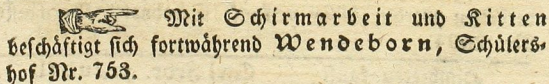 Mit Schirmarbeit und Kitten
beschäftigt sich fortwährend Wendeborn, Schülers-
hof Nr. 753.